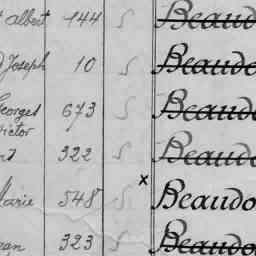 Albert 144 S Beaudo
Joseph 10 S Beaudo
Georges 673 S Beaudo
Victor
322 S Beaudo
x
Marie 548 S Beaudo
323 S Beaudo